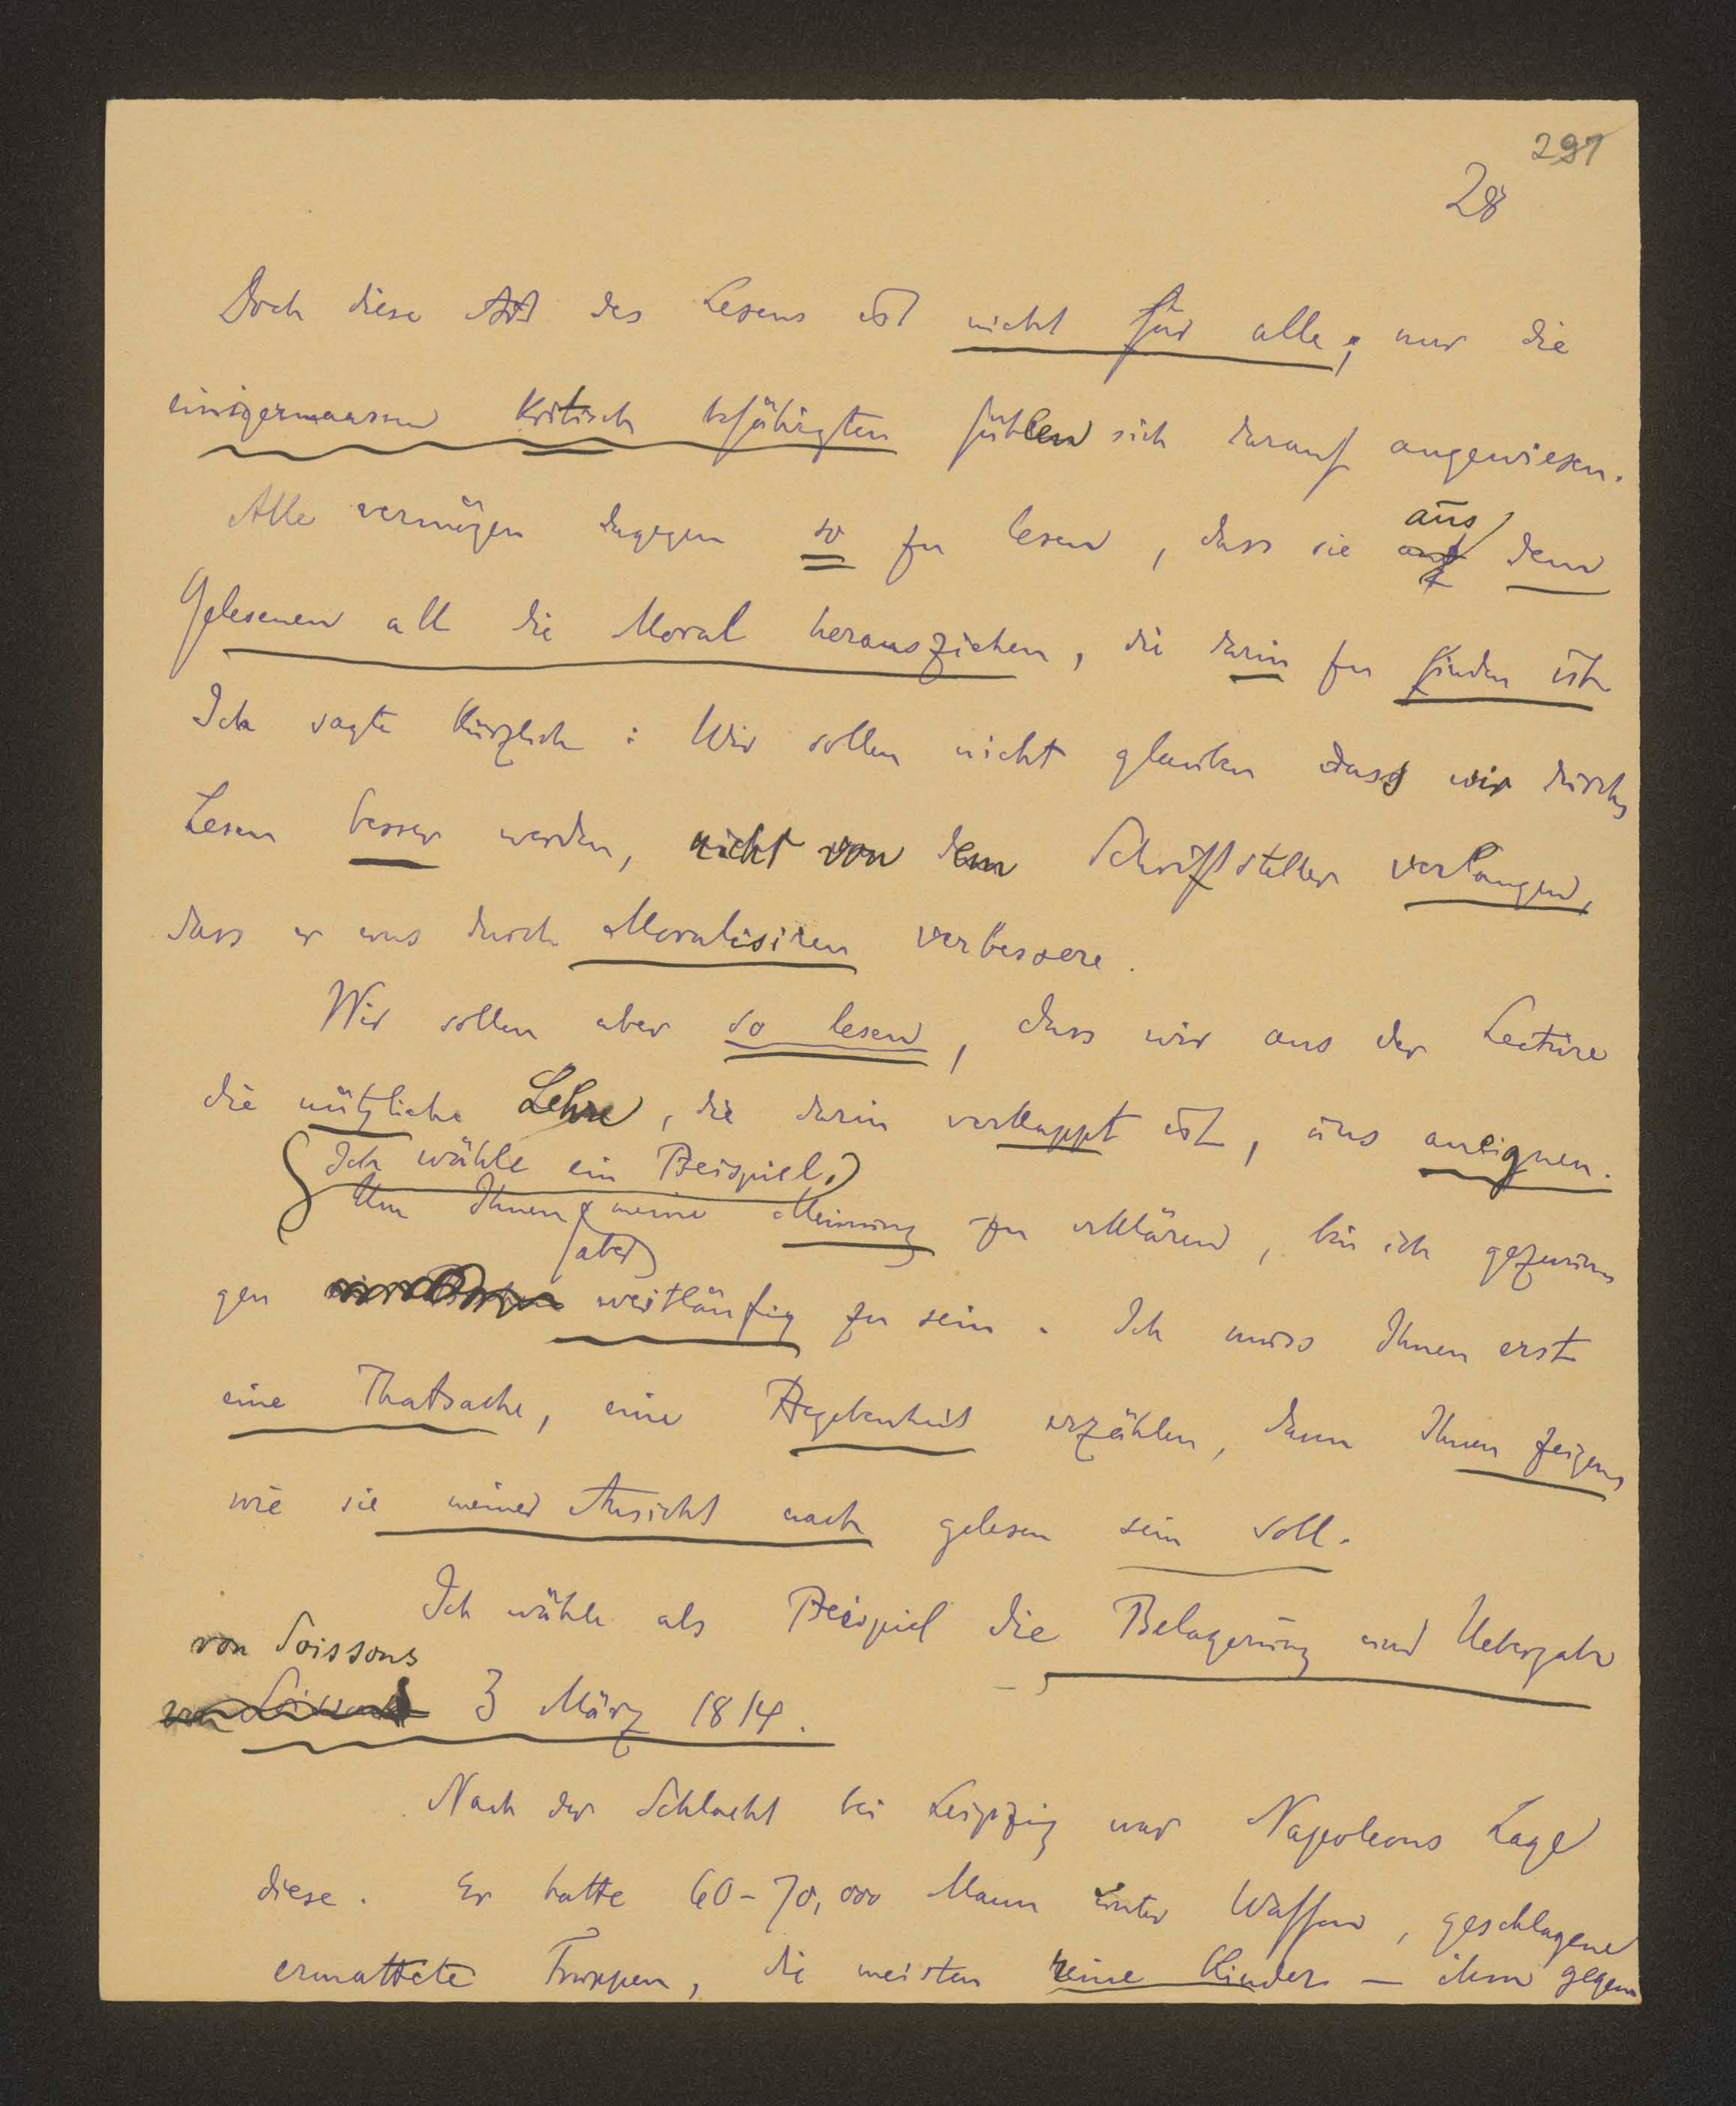 291
28
Doch diese Art des Lesens ist nicht für alle; nur die
einigermaassen kritisch befähigten fühlen sich darauf angewiesen.
Alle vermögen dagegen so zu lesen, dass sie aus dem
Gelesenen all die Moral herausziehen, die darin zu finden ist
Ich sagte kürzlich: Wir sollen nicht glauben dass wir durchs
Lesen besser werden, nicht von dem Schriftsteller verlangen,
dass er uns durch Moralisiren verbessere.
Wir sollen aber so lesen, dass wir aus der Lectüre
die nützliche Lehre, die darin verkappt ist, uns aneignen.
(Ich wähle ein Beispiel.)
Um Ihnen meine Meinung zu erklären, bin ich gezwun
(aber)
gen weitläufig zu sein. Ich muss Ihnen erst
eine Thatsache, eine Begebenheit erzählen, dann Ihnen zeigen
wie sie meiner Ansicht nach gelesen sein soll.
Ich wähle als Beispiel die Belagerung und Uebergabe
von Soissons
3 März 1814.
Nach der Schlacht bei Leipzig war Napoleons Lage
diese. Er hatte 60-70,000 Mann unter Waffen, geschlagene
ermattete Truppen, die meisten reine Kinder — ihm gegen